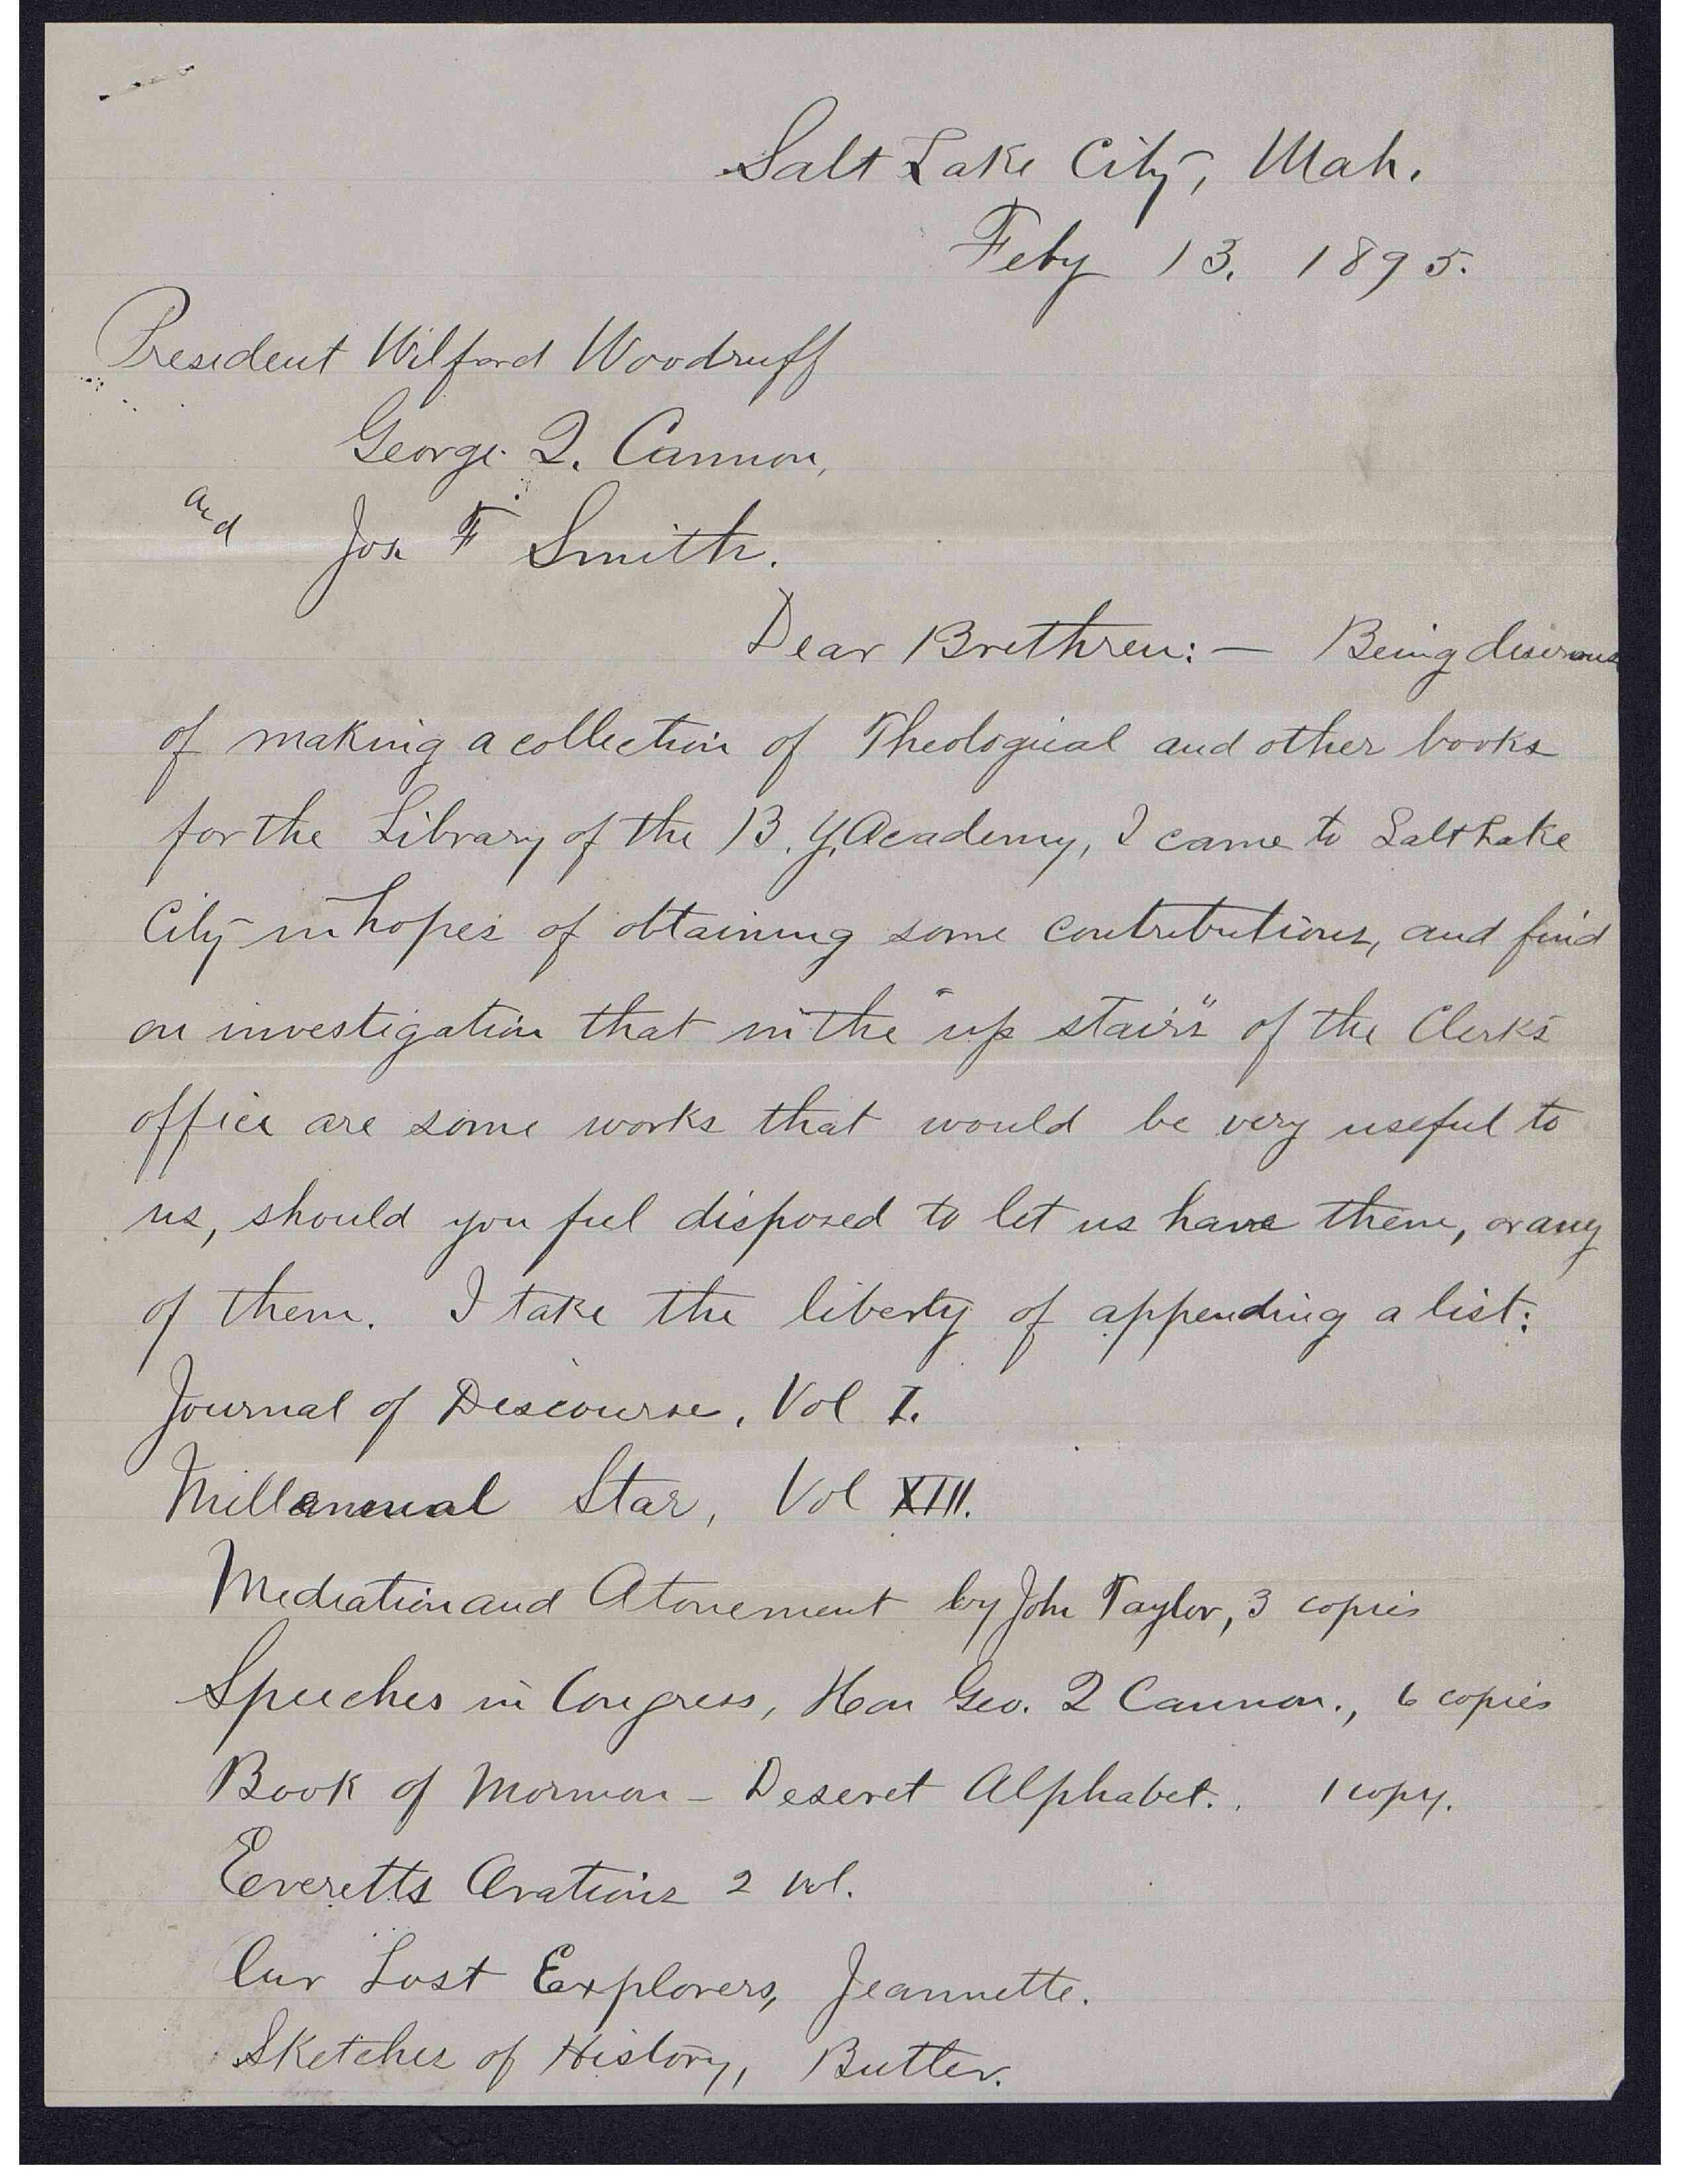 Salt Lake City, Utah.
Feby 13. 1895.
President Wilford Woodruff
George Q. Cannon,
and Jos F Smith.
Dear Brethren: — Being
of making a collection of Theological and other books
for the Library of the B. Y. Academy, I came to Salt Lake
City in hopes of obtaining some contributions, and find
on investigation that in the "up stairs" of the Clerks
office are some works that would be very useful to
us, should you feel disposed to let us have them, or any
of them. I take the liberty of appending a list:
Journal of Discourse, Vol I.
Millannual Star, Vol XIII.
Mediation and Atonement by John Taylor, 3 copies
Speeches in Congress, Hon Geo. Q Cannon., 6 copies
Book of Mormon - Deseret Alphabet.. 1 copy.
Everetts Orations 2 vol.
Our Lost Explorers, Jeannette.
Sketches of History, Butler.